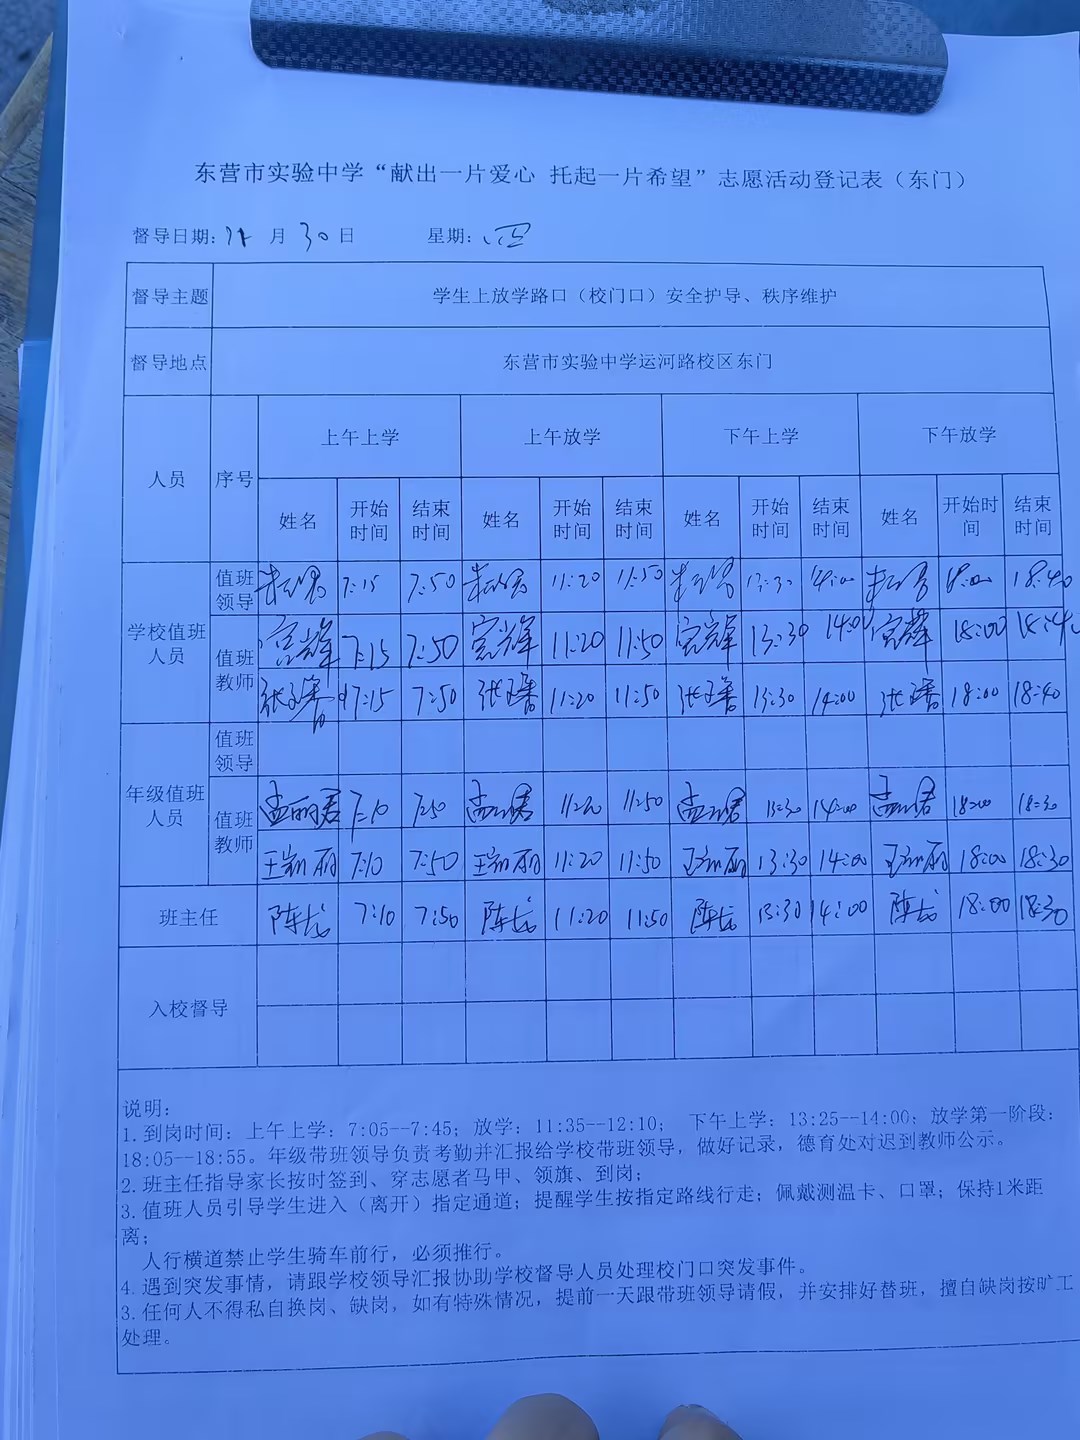 东营市实验中学“献出一片爱心 托起一片希望”志愿活动登记表（东门）
督导日期: 月 30 日 星期: 四
督导主题 学生上放学路口（校门口）安全护导、秩序维护
督导地点 东营市实验中学运河路校区东门
人员 序号 上午上学 上午放学 下午上学 下午放学
姓名 开始时间 结束时间 姓名 开始时间 结束时间 姓名 开始时间 结束时间 姓名 开始时间 结束时间
学校值班人员 值班领导 7:15 7:50 11:20 11:50 13:30 14:00 18:00 18:40
值班教师 7:15 7:50 11:20 11:50 13:30 14:00 18:00 18:40
7:15 7:50 11:20 11:50 13:30 14:00 18:00 18:40
年级值班人员 值班领导
值班教师 孟丽君 7:10 7:50 孟丽君 11:20 11:50 孟丽君 13:30 14:00 孟丽君 18:00 18:30
7:10 7:50 11:20 11:50 13:30 14:00 18:00 18:30
班主任 7:10 7:50 11:20 11:50 13:30 14:00 18:00 18:30
入校督导
说明:
1.到岗时间: 上午上学: 7:05--7:45; 放学: 11:35--12:10; 下午上学: 13:25--14:00; 放学第一阶段:
18:05--18:55。年级带班领导负责考勤并汇报给学校带班领导，做好记录，德育处对迟到教师公示。
2.班主任指导家长按时签到、穿志愿者马甲、领旗、到岗;
3.值班人员引导学生进入（离开）指定通道; 提醒学生按指定路线行走; 佩戴测温卡、口罩; 保持1米距
离;
人行横道禁止学生骑车前行，必须推行。
4.遇到突发事情，请跟学校领导汇报协助学校督导人员处理校门口突发事件。
3.任何人不得私自换岗、缺岗，如有特殊情况，提前一天跟带班领导请假，并安排好替班，擅自缺岗按旷工
处理。